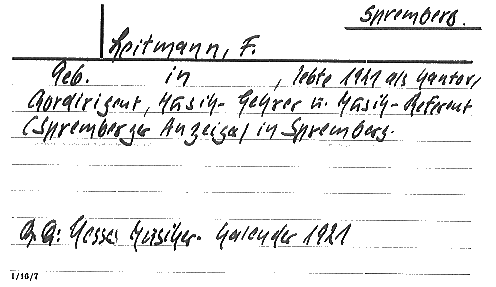 Spremberg.
Leitmann, F.
Geb. in , lebte 1921 als Kantor,
Chordirigent, Musik-Lehrer u. Musik-Referent
(Spremberger Anzeiger) in Spremberg.
Qu.: Hesses Musiker-Kalender 1921
1/16/7